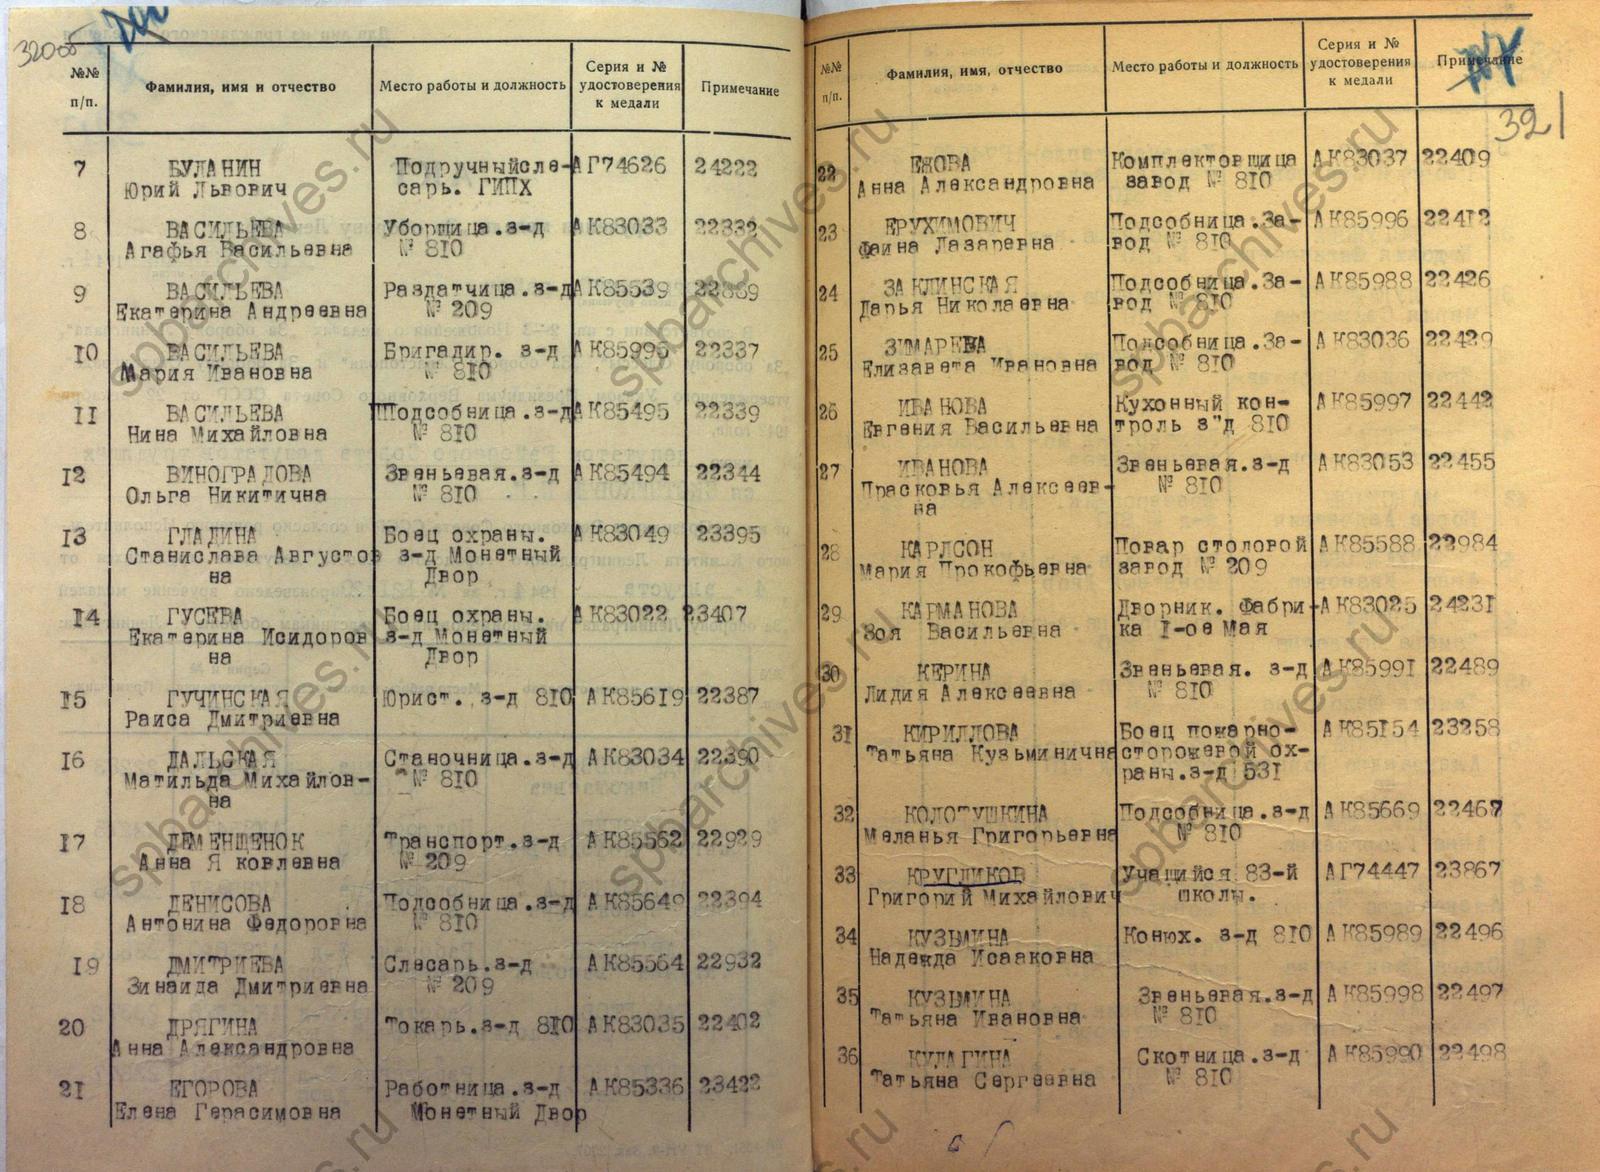 320об
№№ п/п. Фамилия, имя и отчество Место работы и должность Серия и № удостоверения к медали Примечание
7 БУЛАНИН Подручныйсле- АГ74626 24222
Юрий Львович сарь. ГИПХ
8 ВАСИЛЬЕВА Уборщица.з-д АК83033 22332
Агафья Васильевна № 810
9 ВАСИЛЬЕВА Раздатчица.з-д АК85539 22869
Екатерина Андреевна № 209
10 ВАСИЛЬЕВА Бригадир. з-д АК85995 22337
Мария Ивановна № 810
11 ВАСИЛЬЕВА Подсобница.з-д АК85495 22339
Нина Михайловна № 810
12 ВИНОГРАДОВА Звеньевая.з-д АК85494 22344
Ольга Никитична № 810
13 ГЛАДИНА Боец охраны. АК83049 23395
Станислава Августов з-д Монетный
на Двор
14 ГУСЕВА Боец охраны. АК83022 23407
Екатерина Исидоров з-д Монетный
на Двор
15 ГУЧИНСКАЯ Юрист. з-д 810 АК85619 22387
Раиса Дмитриевна
16 ДАЛЬСКАЯ Станочница.з-д АК83034 22390
Матильда Михайлов- № 810
на
17 ДЕМЕНЩЕНОК Транспорт.з-д АК85562 22929
Анна Я ковлевна № 209
18 ДЕНИСОВА Подсобница.з-д АК85649 22394
Антонина Федоровна № 810
19 ДМИТРИЕВА Слесарь.з-д АК85564 22932
Зинаида Дмитриевна № 209
20 ДРЯГИНА Токарь.з-д 810 АК83035 22402
Анна Александровна
21 ЕГОРОВА Работница.з-д АК85336 23422
Елена Герасимовна Монетный Двор
321
№№ п/п. Фамилия, имя, отчество Место работы и должность Серия и № удостоверения к медали Примечание
22 ЕЖОВА Комплектовщица АК83037 22409
Анна Александровна завод № 810
23 ЕРУХИМОВИЧ Подсобница.За- АК85996 22412
Фаина Лазаревна вод № 810
24 ЗАКЛИНСКАЯ Подсобница.За- АК85988 22426
Дарья Николаевна вод № 810
25 ЗИМАРЕВА Подсобница.За- АК83036 22429
Елизавета Ивановна вод № 810
26 ИВАНОВА Кухонный кон- АК85997 22442
Евгения Васильевна троль з"д 810
27 ИВАНОВА Звеньевая.з-д АК83053 22455
Прасковья Алексеев- № 810
на
28 КАРЛСОН Повар столовой АК85588 22984
Мария Прокофьевна завод № 209
29 КАРМАНОВА Дворник. Фабри- АК83025 24231
Зоя Васильевна ка I-ое Мая
30 КЕРИНА Звеньевая. з-д АК85991 22489
Лидия Алексеевна № 810
31 КИРИЛЛОВА Боец пожарно- АК85154 23258
Татьяна Кузьминична сторожевой ох-
раны.з-д 531
32 КОЛОТУШКИНА Подсобница.з-д АК85669 22467
Меланья Григорьевна № 810
33 КРУГЛИКОВ Учащийся 83-й АГ74447 23867
Григорий Михайлович школы.
34 КУЗЬМИНА Конюх. з-д 810 АК85989 22496
Надежда Исааковна
35 КУЗЬМИНА Звеньевая.з-д АК85998 22497
Татьяна Ивановна № 810
36 КУЛАГИНА Скотница.з-д АК85990 22498
Татьяна Сергеевна № 810
spbarchives.ru